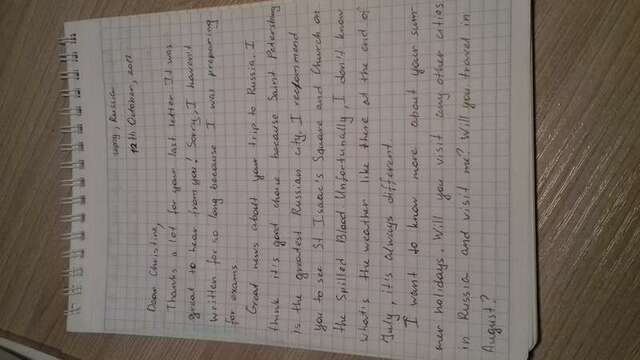 Russia
12th October, 2017
Dear Christine,
Thanks a lot for your last letter. It was
great to hear from you! Sorry, I haven't
written for so long because I was preparing
for exams.
Great news about your trip to Russia. I
think it's good choice because Saint Petersburg
is the greatest Russian city. I recommend
you to see St. Isaac's Square and Church on
the Spilled Blood. Unfortunally, I don't know
what's the weather like there at the end of
July, it's always different.
I want to know more about your sum-
mer holidays. Will you visit any other cities
in Russia and visit me? Will you travel in
August?